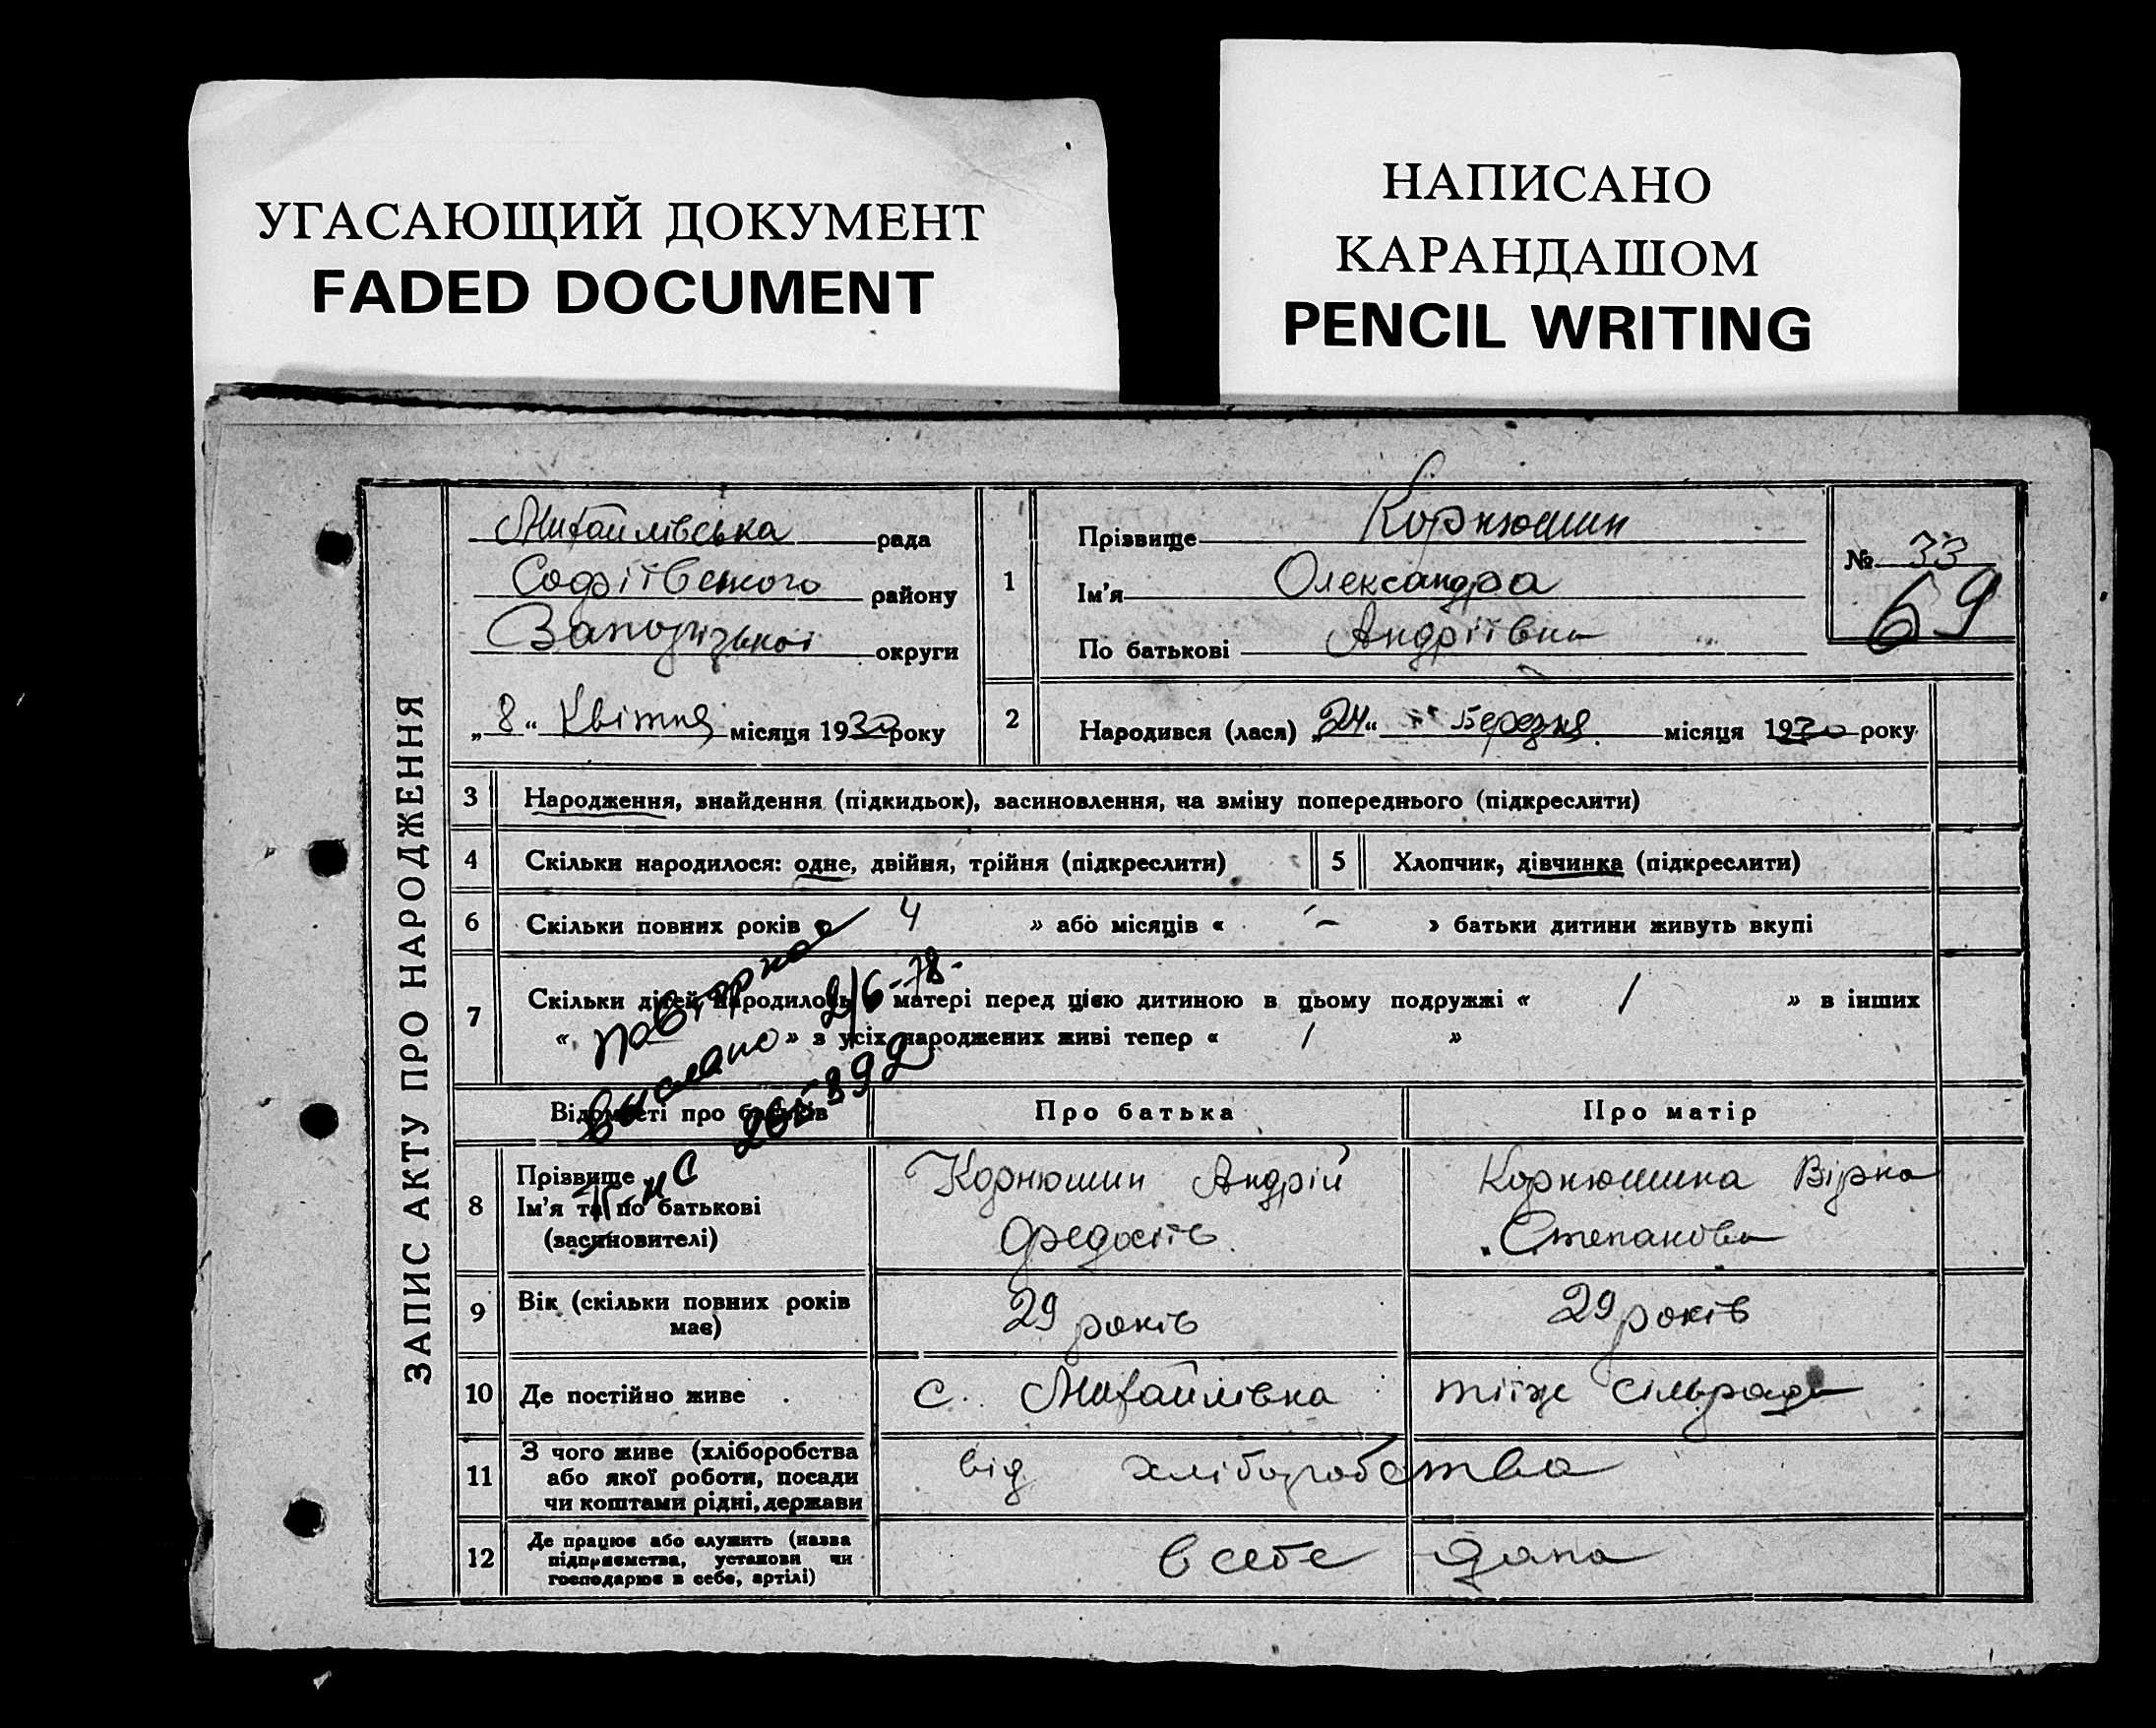 УГАСАЮЩИЙ ДОКУМЕНТ
FADED DOCUMENT
НАПИСАНО
КАРАНДАШОМ
PENCIL WRITING
ЗАПИС АКТУ ПРО НАРОДЖЕННЯ
Михайлівська рада
Софіївського району
Запорізької округи
„8“ Квітня місяця 1930 року
1
Прізвище Корнюшин
Ім'я Олександра
По батькові Андріївна
№ 33
69
2 Народився (лася) „24“ Березня місяця 1930 року
3 Народження, знайдення (підкидьок), засиновлення, на зміну попереднього (підкреслити)
4 Скільки народилося: одне, двійня, трійня (підкреслити) 5 Хлопчик, дівчинка (підкреслити)
6 Скільки повних років « 4 » або місяців « — » батьки дитини живуть вкупі
7 Скільки дітей народилось матері перед цією дитиною в цьому подружжі « 1 » в інших
« » з усіх народжених живі тепер « 1 »
повторно 2/6-78-
выслано
Відомості про батьків Про батька Про матір
8 Прізвище
Ім'я та по батькові
(засиновителі)
Корнюшин Андрій
Федосіїв
Корнюшина Вірка
Степанова
9 Вік (скільки повних років
має)
29 років 29 років
10 Де постійно живе с. Михайлівка тіїж сільради
11 З чого живе (хліборобства
або якої роботи, посади
чи коштами рідні, держави
від хліборобства
12 Де працює або служить (назва
підприємства, установи чи
господарює в себе, артілі)
в себе дома